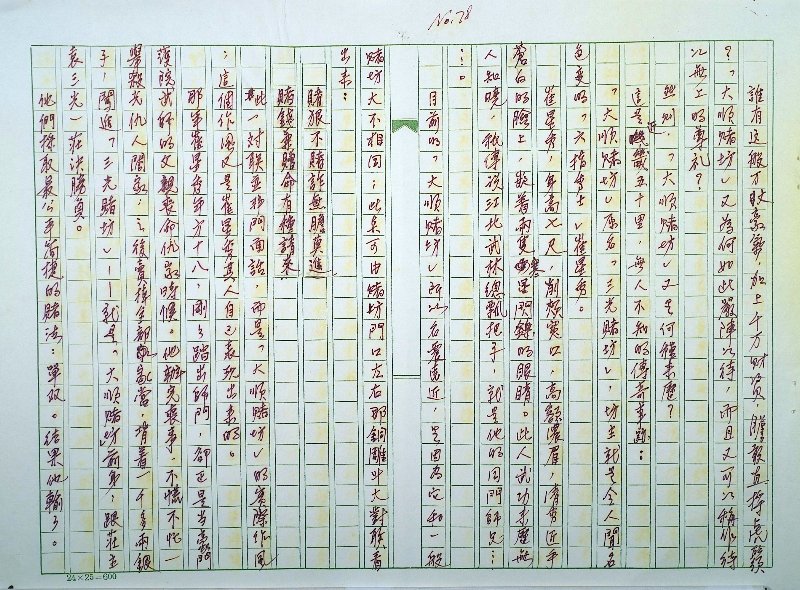 No.78
誰有這般才耿豪氣,加上千萬財資,膽敢直捋虎鬚
?「大順賭坊」又為何如此嚴陣以待,而且又可以稱作待
以無上的尊礼?
然則,「大順賭坊」又是何種來歷?
這是近五十里,無人不知的傳奇事跡:
「大順賭坊」原名「三光賭坊」,坊主就是令人聞名
色變的「六指," 崔星秀。
崔星秀,身高七尺,削頰寬口,高額濃眉,清秀近乎
蒼白的臉上,嵌着兩隻寒星閃鑠的眼睛。此人武功來歷無
人知曉,祇傳說江北武林總瓢把子,就是他的同門師兄…
…。
目前的「大順賭坊」所以名震遠近,是因為它和一般
賭坊大不相同;此点可由賭坊門口左右那銅雕斗大對聯看
出來:
賭狠不賭詐無膽莫進
賭錢兼賭命有種請來
此一對聯並非門面話,而是「大順賭坊」的實際作風
;這個作風又是崔星秀其人自己表現出來的。
那年崔星秀年方十八,剛剛踏出師門,卻正是当豪門
護院武師的父親喪命仇家時候。他辦完喪事,不慌不忙一
舉殺光仇人闔家,之後賣掉全部家當,揹着一千多兩銀
子,闖進「三光賭坊」——就是「大順賭坊」前身,跟莊主
袁三光一莊決勝負。
他們採取最公平簡捷的賭法:單双。結果他輸了。
24×25=600